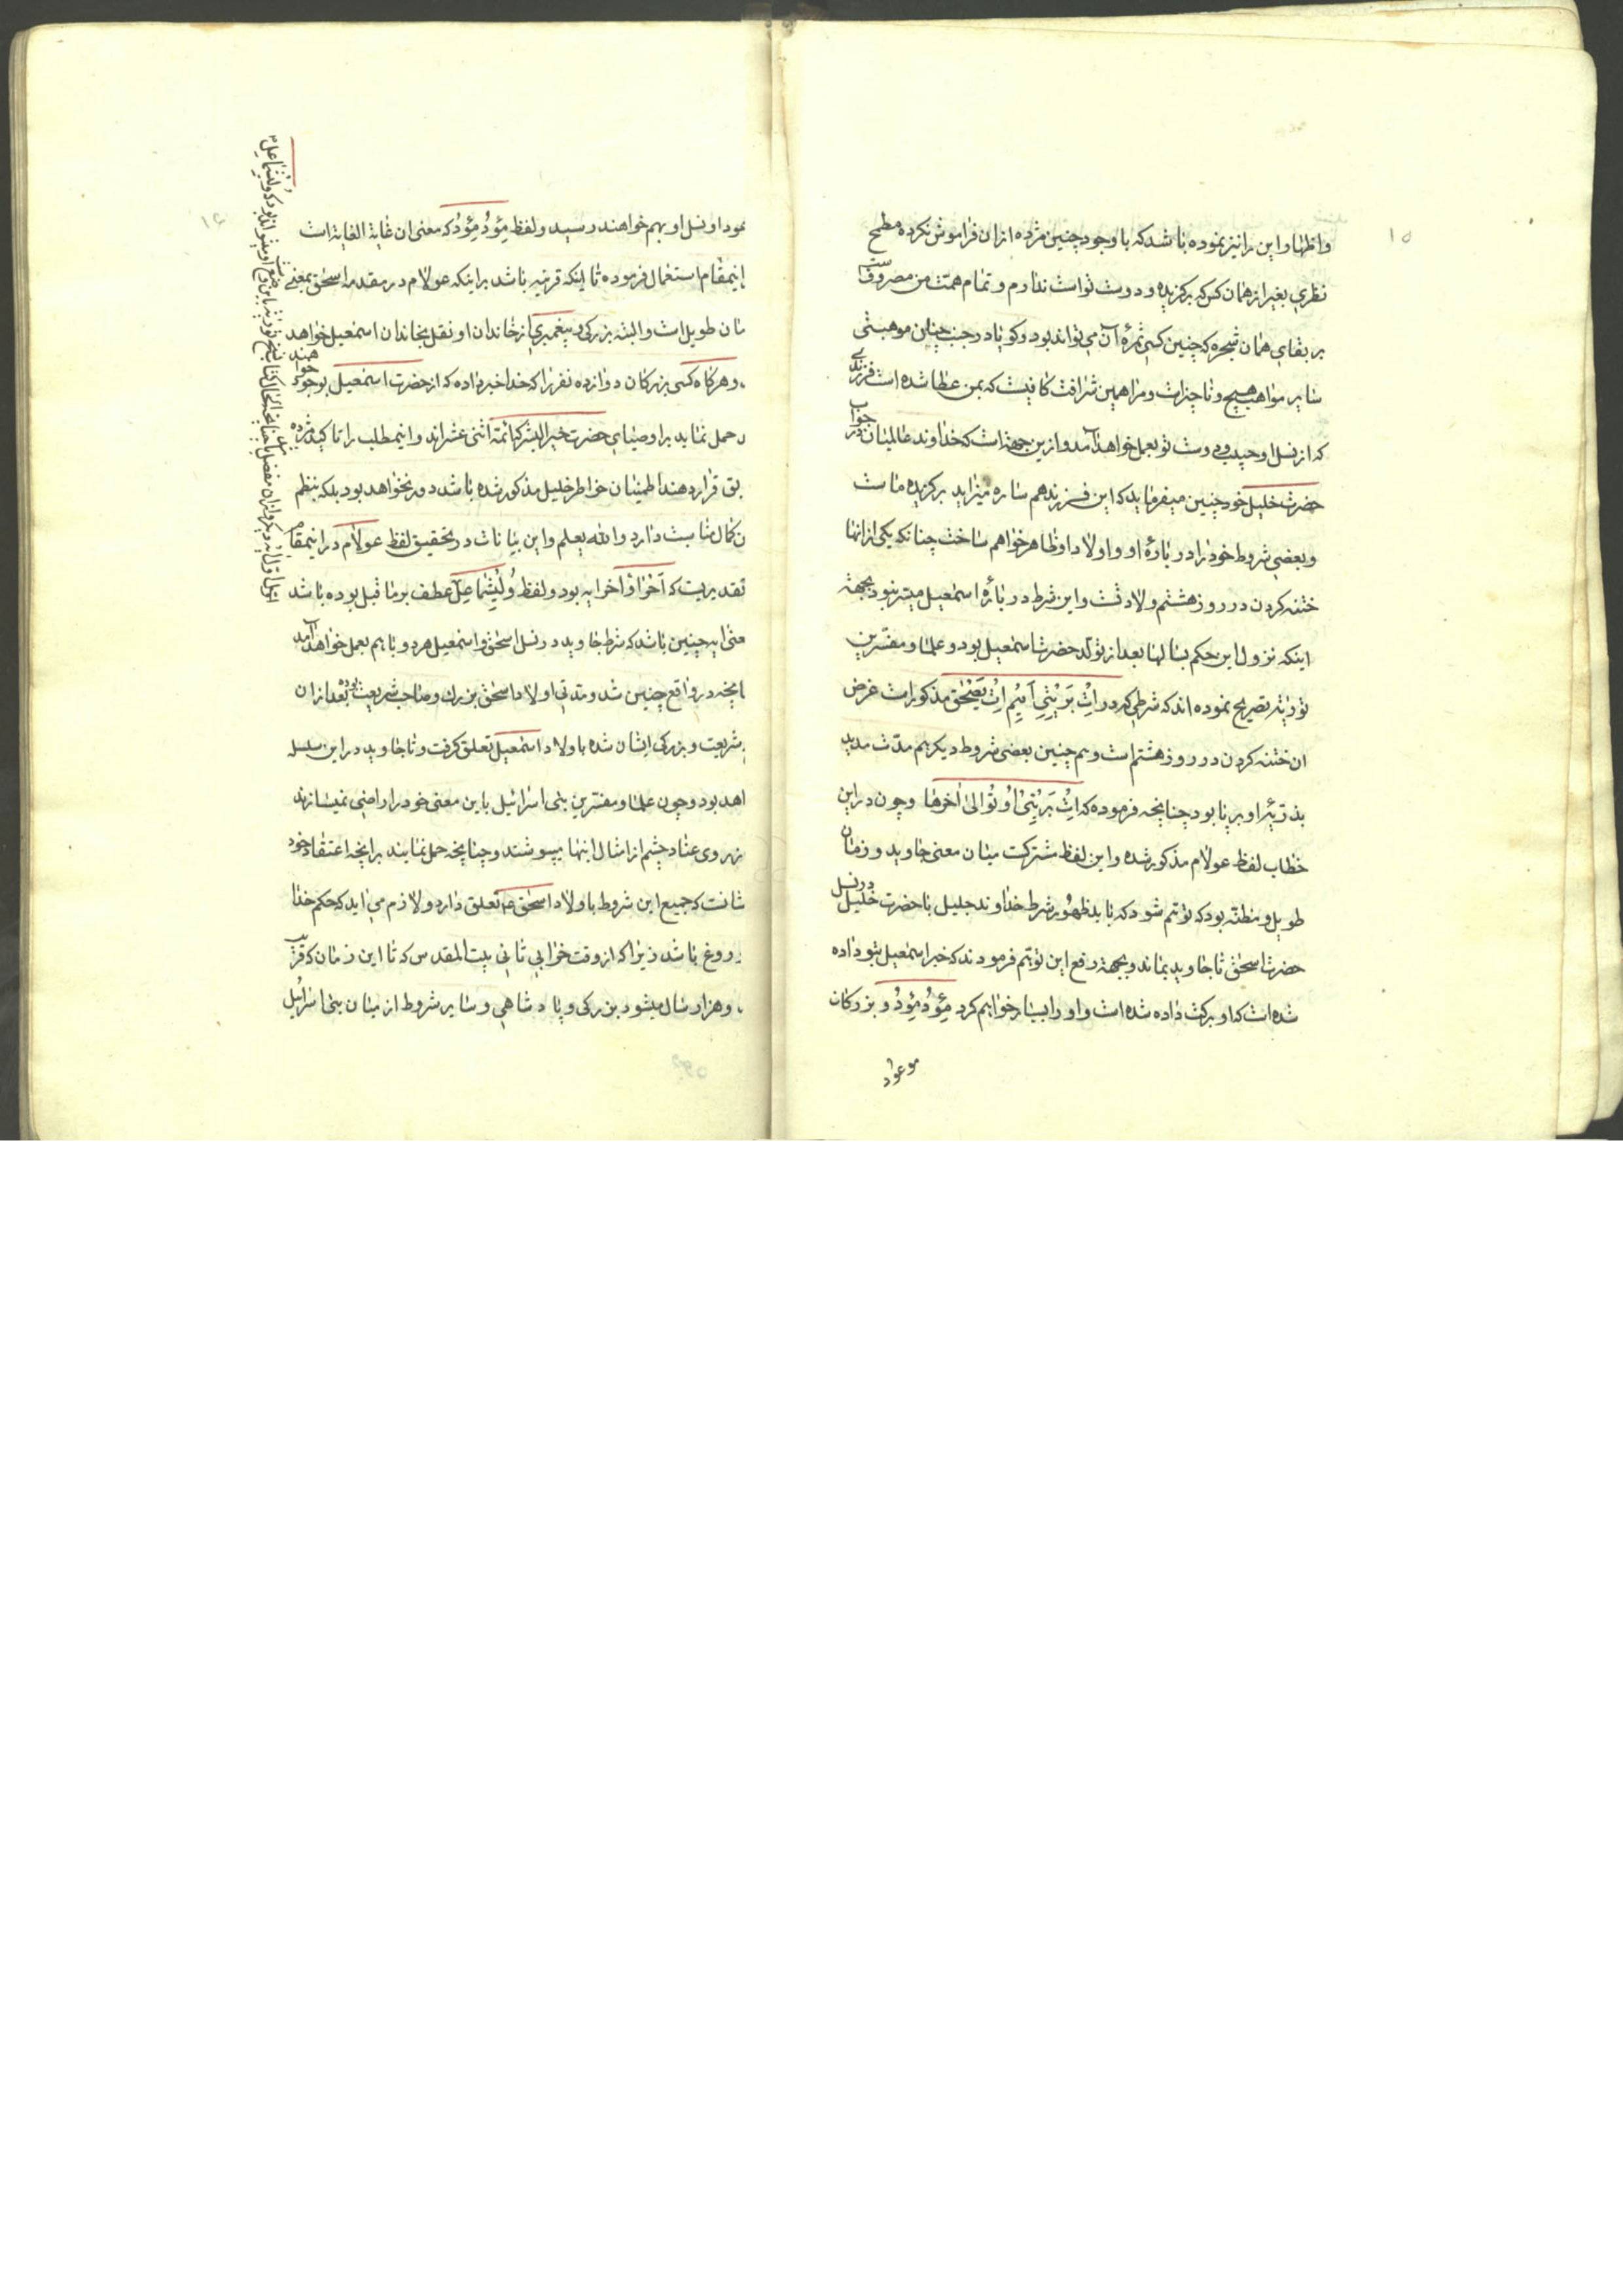 ۱۵
واظهار این را نیز نموده باشد که با وجود چنین مژده از ان فراموش نکرده مطمح
نظری بغیر از همان کس که برکزیده و دوست تواست ندارم و تمام همت من مصروفست
بر بقای همان شجره که چنین کسی ثمرهٔ آن می تواند بود و کویا در جنب چنین موهبتی
سایر مواهب هیچ و ناچیز است و مرا همین شرافت کافیست که بمن عطا شده است فرزندی
که از نسل او حبیب و دوست تو بعمل خواهد آمد و ازین جهة است که خداوند عالمیان در جواب
حضرت خلیل خود چنین میفرماید که این فرزند هم ساره میزاید برکزیده ماست
و بعضی شروط خود را در بارهٔ او و اولاد او ظاهر خواهم ساخت چنانکه یکی از انها
ختنه کردن در روز هشتم ولادتست و این شرط در بارهٔ اسمعیل میسر نبود بجهة
اینکه نزول این حکم بسالها بعد از تولد حضرت اسمعیل بود و علما و مفسرین
توریة تصریح نموده اند که شرطی که در اِتْ بَرْیتِی آقیم اِتْ یصحٰق مذکور است غرض
ان ختنه کردن در روز هشتم است و هم چنین بعضی شروط دیکر هم مدت مدید
بذریهٔ او بر پا بود چنانچه فرموده که اِتْ بَرْیتی اُو تُوْ الی اٰخرها و چون در این
خطاب لفظ عولام مذکور شده و این لفظ مشترکست میان معنی جاوید و زمان
طویل و مظنه بود که توهم شود که باید ظهور شرط خداوند جلیل با حضرت خلیل در نسل
حضرت اسحٰق تا جاوید بماند و بجهة رفع این توهم فرمودند که خبر اسمعیل بتو داده
شده است که او برکت داده شده است و او را بسیار خواهیم کرد مِئؤدْ مِئؤدْ و بزرکان
موعود
۱۶
نمود او نسل او بهم خواهند رسید و لفظ مِئؤدْ مِئؤدْ که معنی ان غایة الغایة است
اینمقام استعمال فرموده تا اینکه قرینه باشد بر اینکه عولام در مقدمه اسحٰق بمعنی
مان طویل است و البته بزرکی و پیغمبری از خاندان او نقل بخاندان اسمعیل خواهد
، و هرکاه کسی بزرکان دوازده نفر را که خدا خبر داده که از حضرت اسمعیل بوجود خواهند
د حمل نماید بر اوصیای حضرت خیر البشر که ائمه اثنی عشراند و اینمطلب را تاکید مژده
بق قرار دهند اطمینان خواطر خلیل مذکور شده باشد دور نخواهد بود بلکه بنظم
ن کمال مناسبت دارد والله یعلم و این بیانات در تحقیق لفظ عولام در اینمقام
تقدیریست که آخر او آخر ایه بود و لفظ وُلْیِشْماعِل عطف بر ما قبل بوده باشد
معنی ایه چنین باشد که شرط جاوید در نسل اسحٰق و اسمعیل هر دو با هم بعمل خواهد آمد
انچه در واقع چنین شد و مدتی اولاد اسحٰق بزرک و صاحب شریعت بودند بعد از ان
شریعت و بزرکی ایشان شده باولاد اسمعیل تعلق کرفت و تا جاوید در این سلسله
اهد بود و چون علما و مفسرین بنی اسرائیل باین معنی خود را راضی نمیسازند
ز روی عناد چشم از امثال اینها بپوشند و چنانچه حمل نمایند بر انچه اعتقاد خود
شانست که جمیع این شروط باولاد اسحٰق ع تعلق دارد و لازم می اید که حکم خدا
دروغ باشد زیرا که از وقت خرابی ثانی بیت المقدس که تا این زمان که قریب
، و هزار سال میشود بزرکی و پادشاهی و سایر شروط از میان بنی اسرائیل